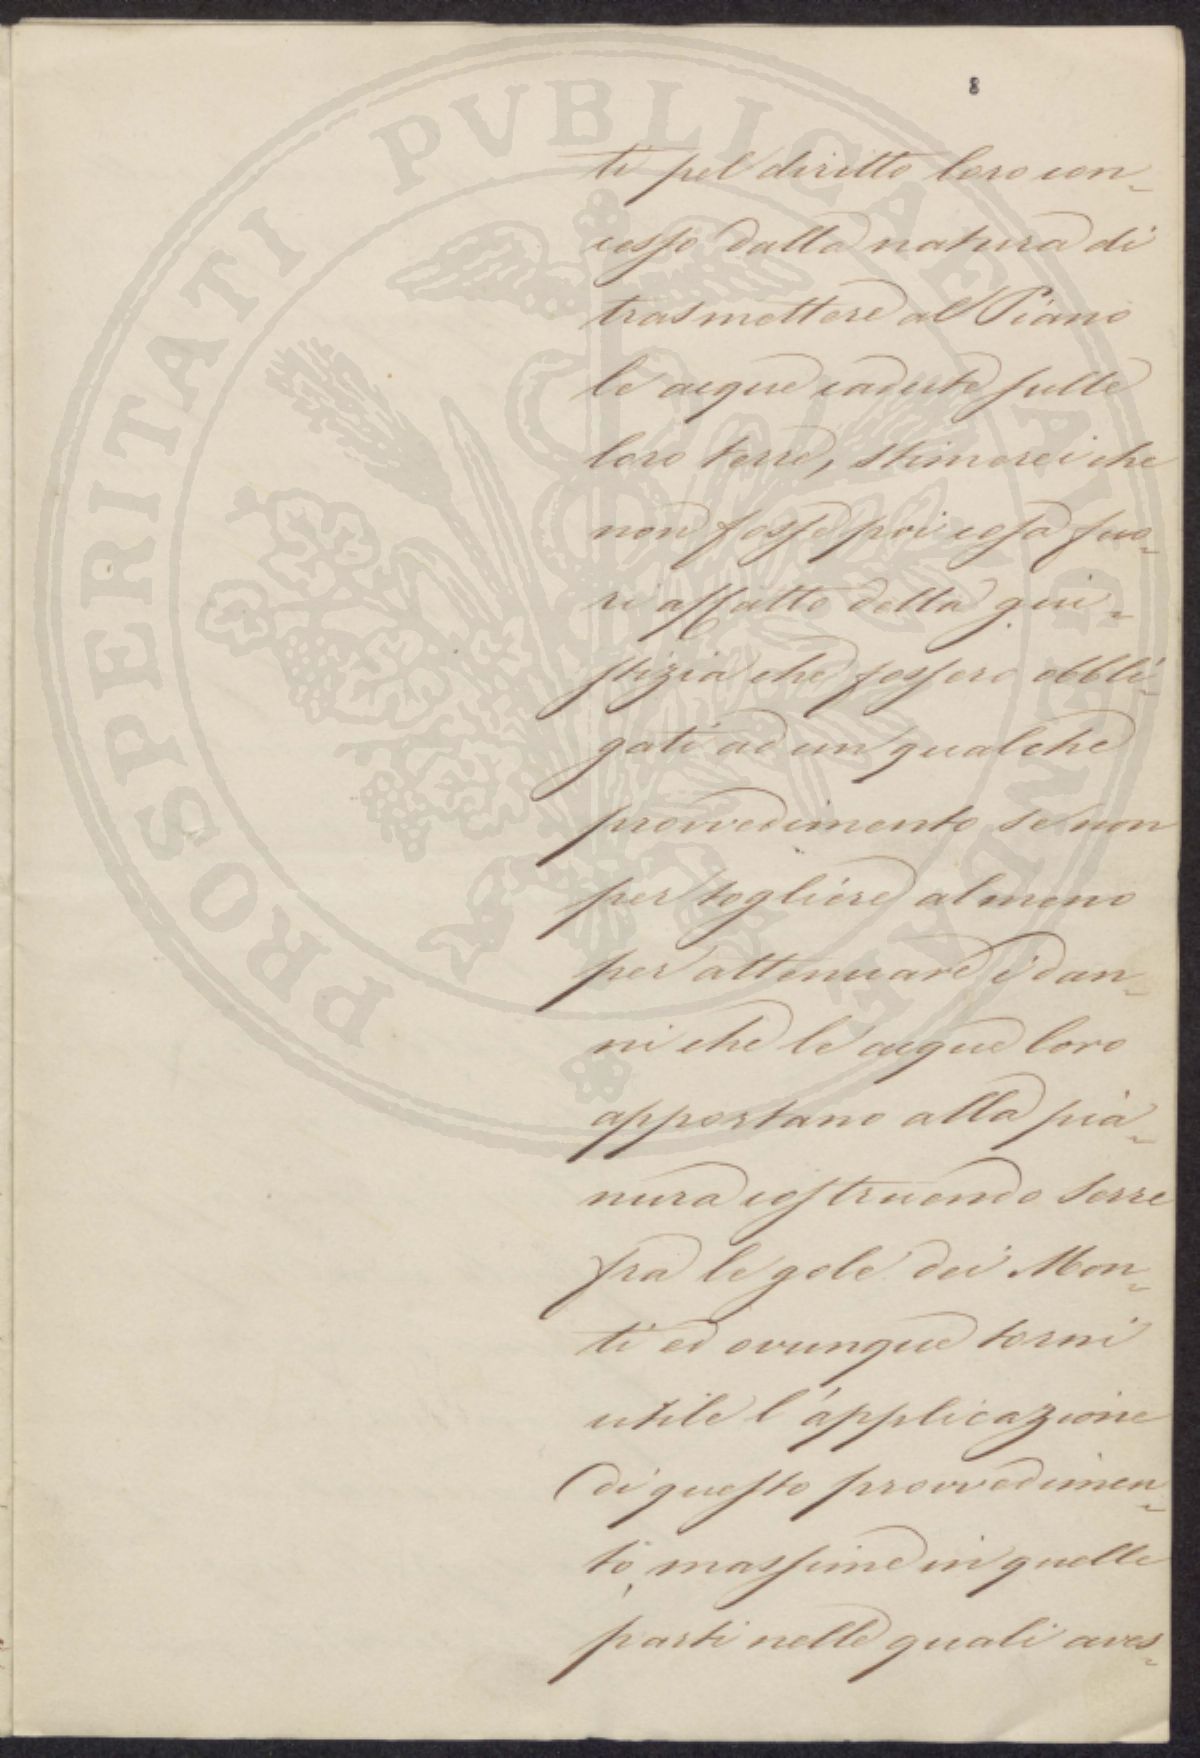 8
ti pel diritto loro con-
cesso dalla natura di
trasmettere al Piano
le acque cadute sulle
loro terre, stimerei che
non fosse poi cosa fuo-
ri affatto della giu-
stizia che fossero obbli-
gati ad un qualche
provvedimento se non
per togliere almeno
per attenuare i dan-
ni che le acque loro
apportano alla pia-
nura costruendo serre
fra le gole dei Mon-
ti ed ovunque torni
utile l'applicazione
di questo provvedimen-
to, massime in quelle
parti nelle quali aves-
PROSPERITATI PVBLICAE AVGENDAE